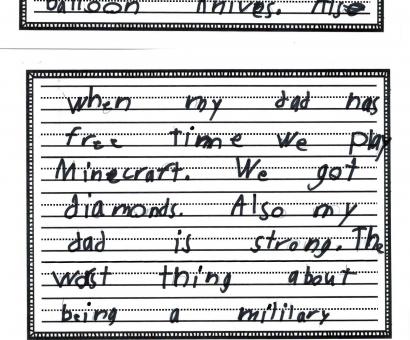 balloon knives. Also
when my dad has
free time we play
Minecraft. We got
diamonds. Also my
dad is strong. The
worst thing about
being a military